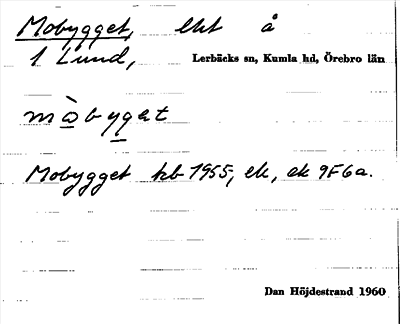 Mobygget, lht å
1 Lund, Lerbäcks sn, Kumla hd, Örebro län
mòbyget
Mobygget hb 1955, ek, ek 9F6a.
Dan Höjdestrand 1960